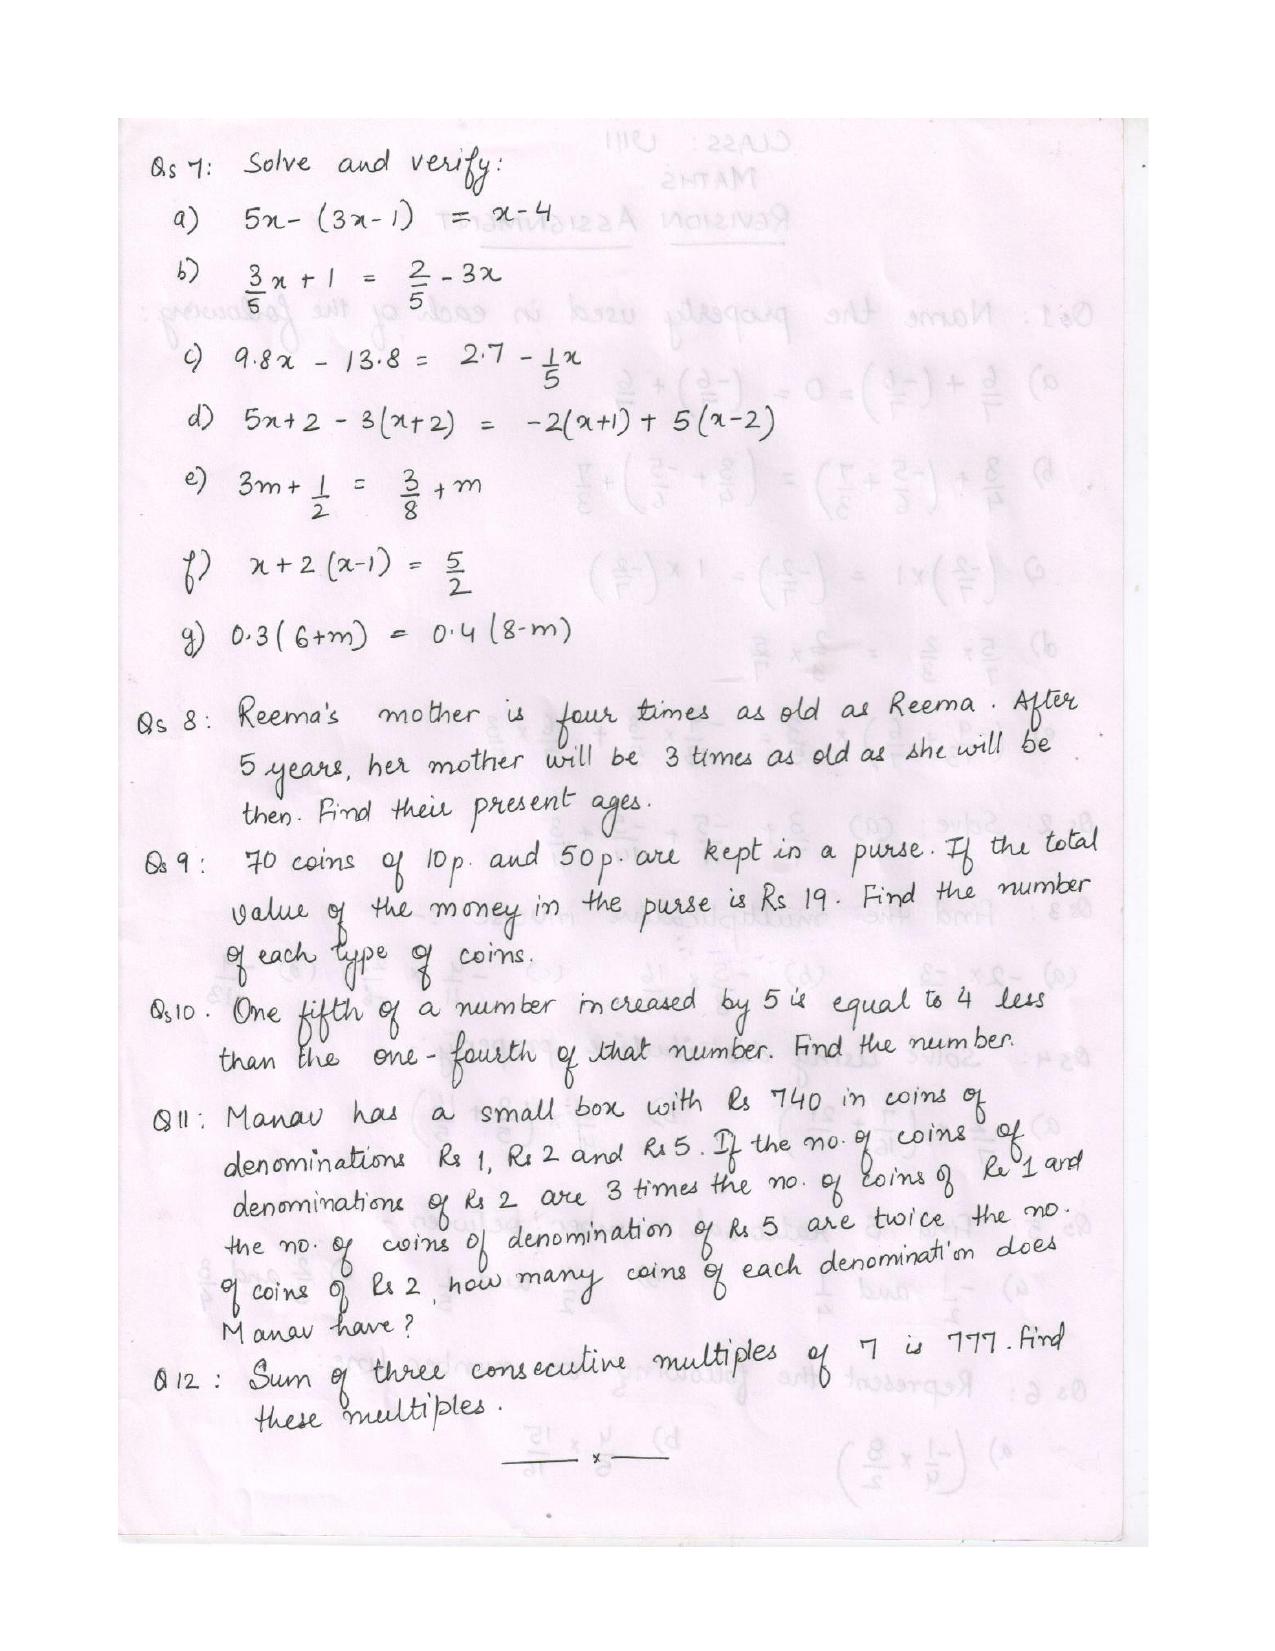 Qs 7: Solve and verify:
a) 5x - (3x - 1) = x - 4
b) 3/5 x + 1 = 2/5 - 3x
c) 9.8x - 13.8 = 2.7 - 1/5 x
d) 5x + 2 - 3(x + 2) = -2(x+1) + 5(x-2)
e) 3m + 1/2 = 3/8 + m
f) x + 2(x-1) = 5/2
g) 0.3(6+m) = 0.4(8-m)
Qs 8: Reema's mother is four times as old as Reema. After
5 years, her mother will be 3 times as old as she will be
then. Find their present ages.
Qs 9: 70 coins of 10p. and 50p. are kept in a purse. If the total
value of the money in the purse is Rs 19. Find the number
of each type of coins.
Qs10. One fifth of a number increased by 5 is equal to 4 less
than the one-fourth of that number. Find the number.
Q11: Manav has a small box with Rs 740 in coins of
denominations Rs 1, Rs 2 and Rs 5. If the no. of coins of
denominations of Rs 2 are 3 times the no. of coins of Re 1 and
the no. of coins of denomination of Rs 5 are twice the no.
of coins of Rs 2, how many coins of each denomination does
Manav have?
Q12: Sum of three consecutive multiples of 7 is 777. Find
these multiples.
x